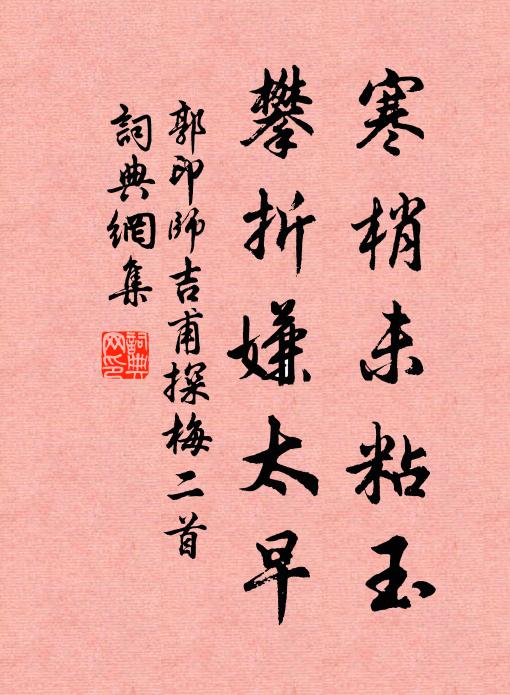 寒梢未粘玉
攀折嫌太早
郭印師吉甫探梅二首
詞典網集
詞典網印